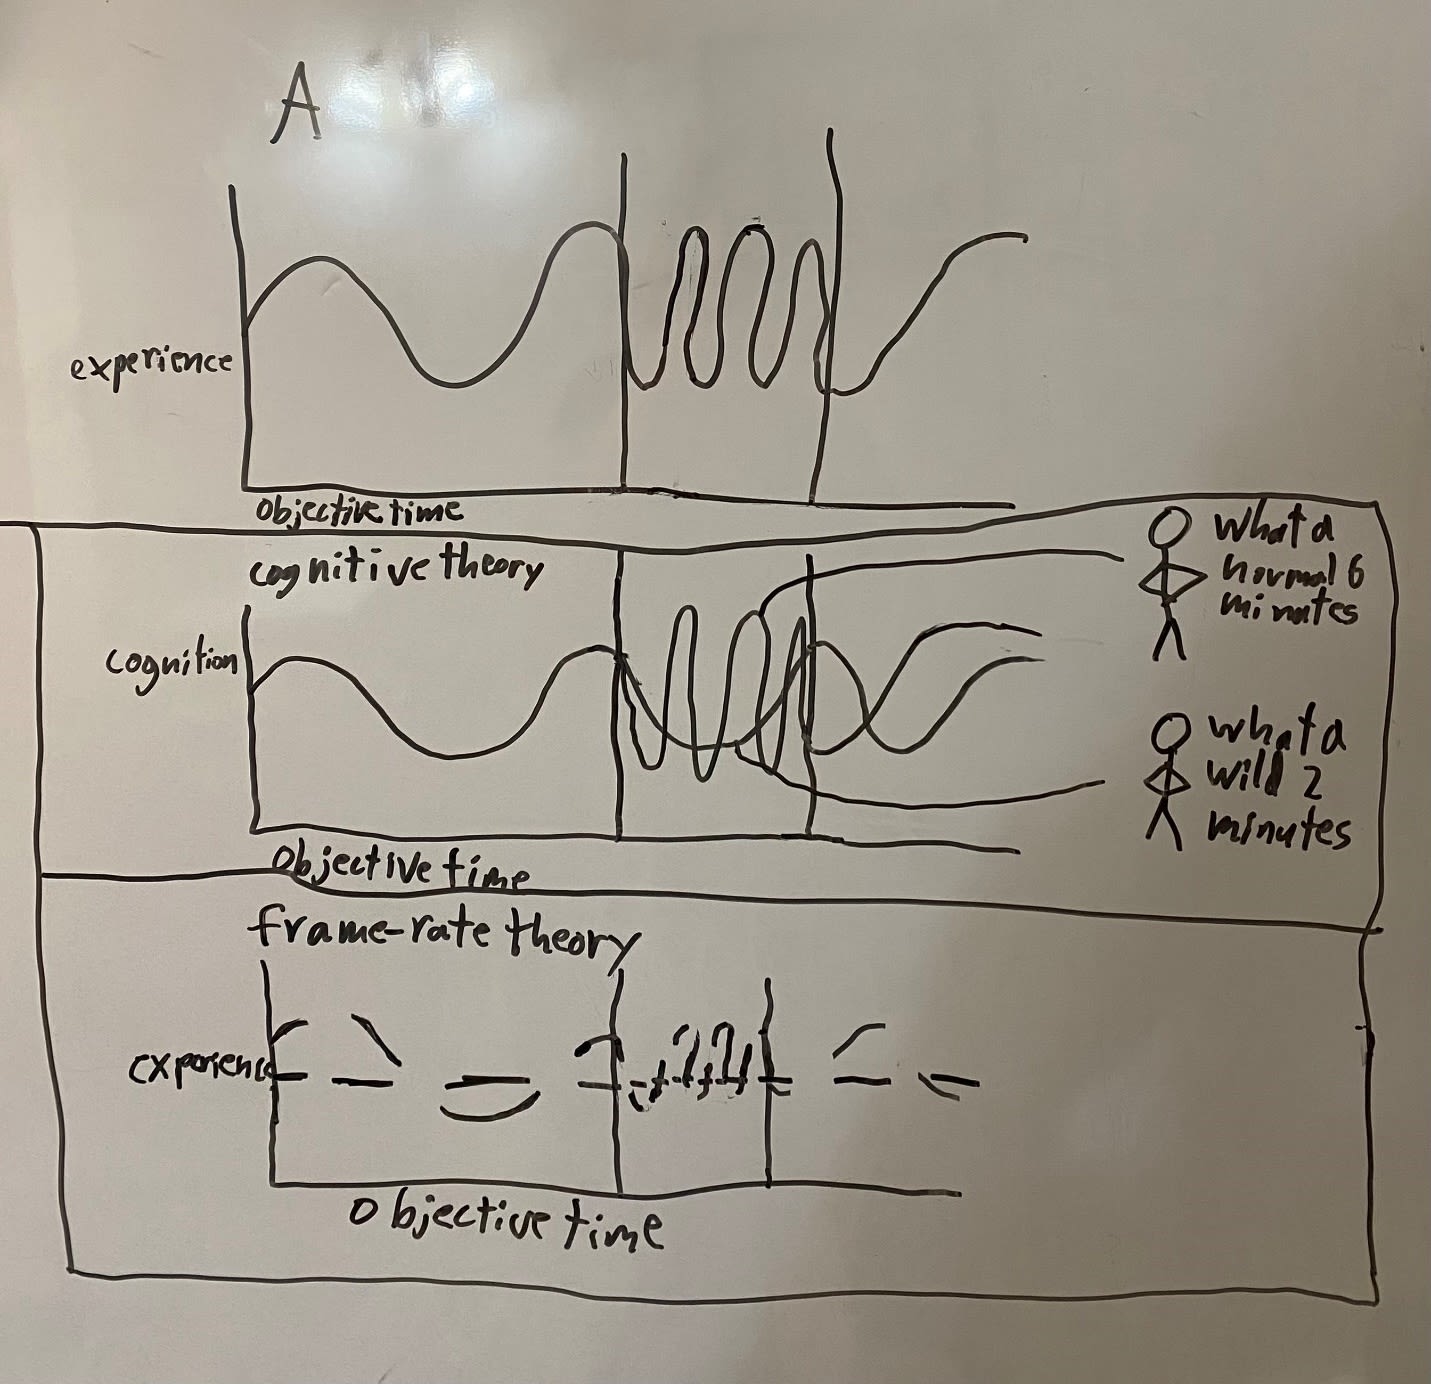 A
experience
objective time
cognitive theory
cognition
objective time
what a
normal 6
minutes
what a
wild 2
minutes
frame-rate theory
experience
objective time